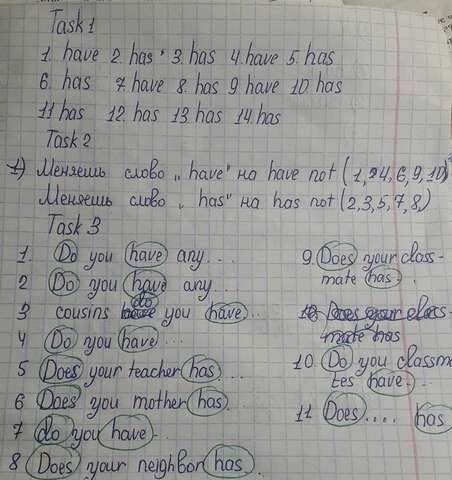 Task 1
1. have 2. has 3. has 4. have 5. has
6. has 7. have 8. has 9 have 10. has
11 has 12. has 13 has 14. has
Task 2
1) Меняешь слово „have" на have not (1, 24, 6, 9, 10)
Меняешь слово „has" на has not (2, 3, 5, 7, 8,)
Task 3
1. Do you have any...
2 Do you have any...
3 cousins do you have...
4 Do you have...
5 Does your teacher has...
6 Does you mother has...
7 do you have.
8 Does your neighbor has.
9 Does your class-
mate has.
10 Does your class-
mate has
10. Do you classma
tes have...
11 Does.... has